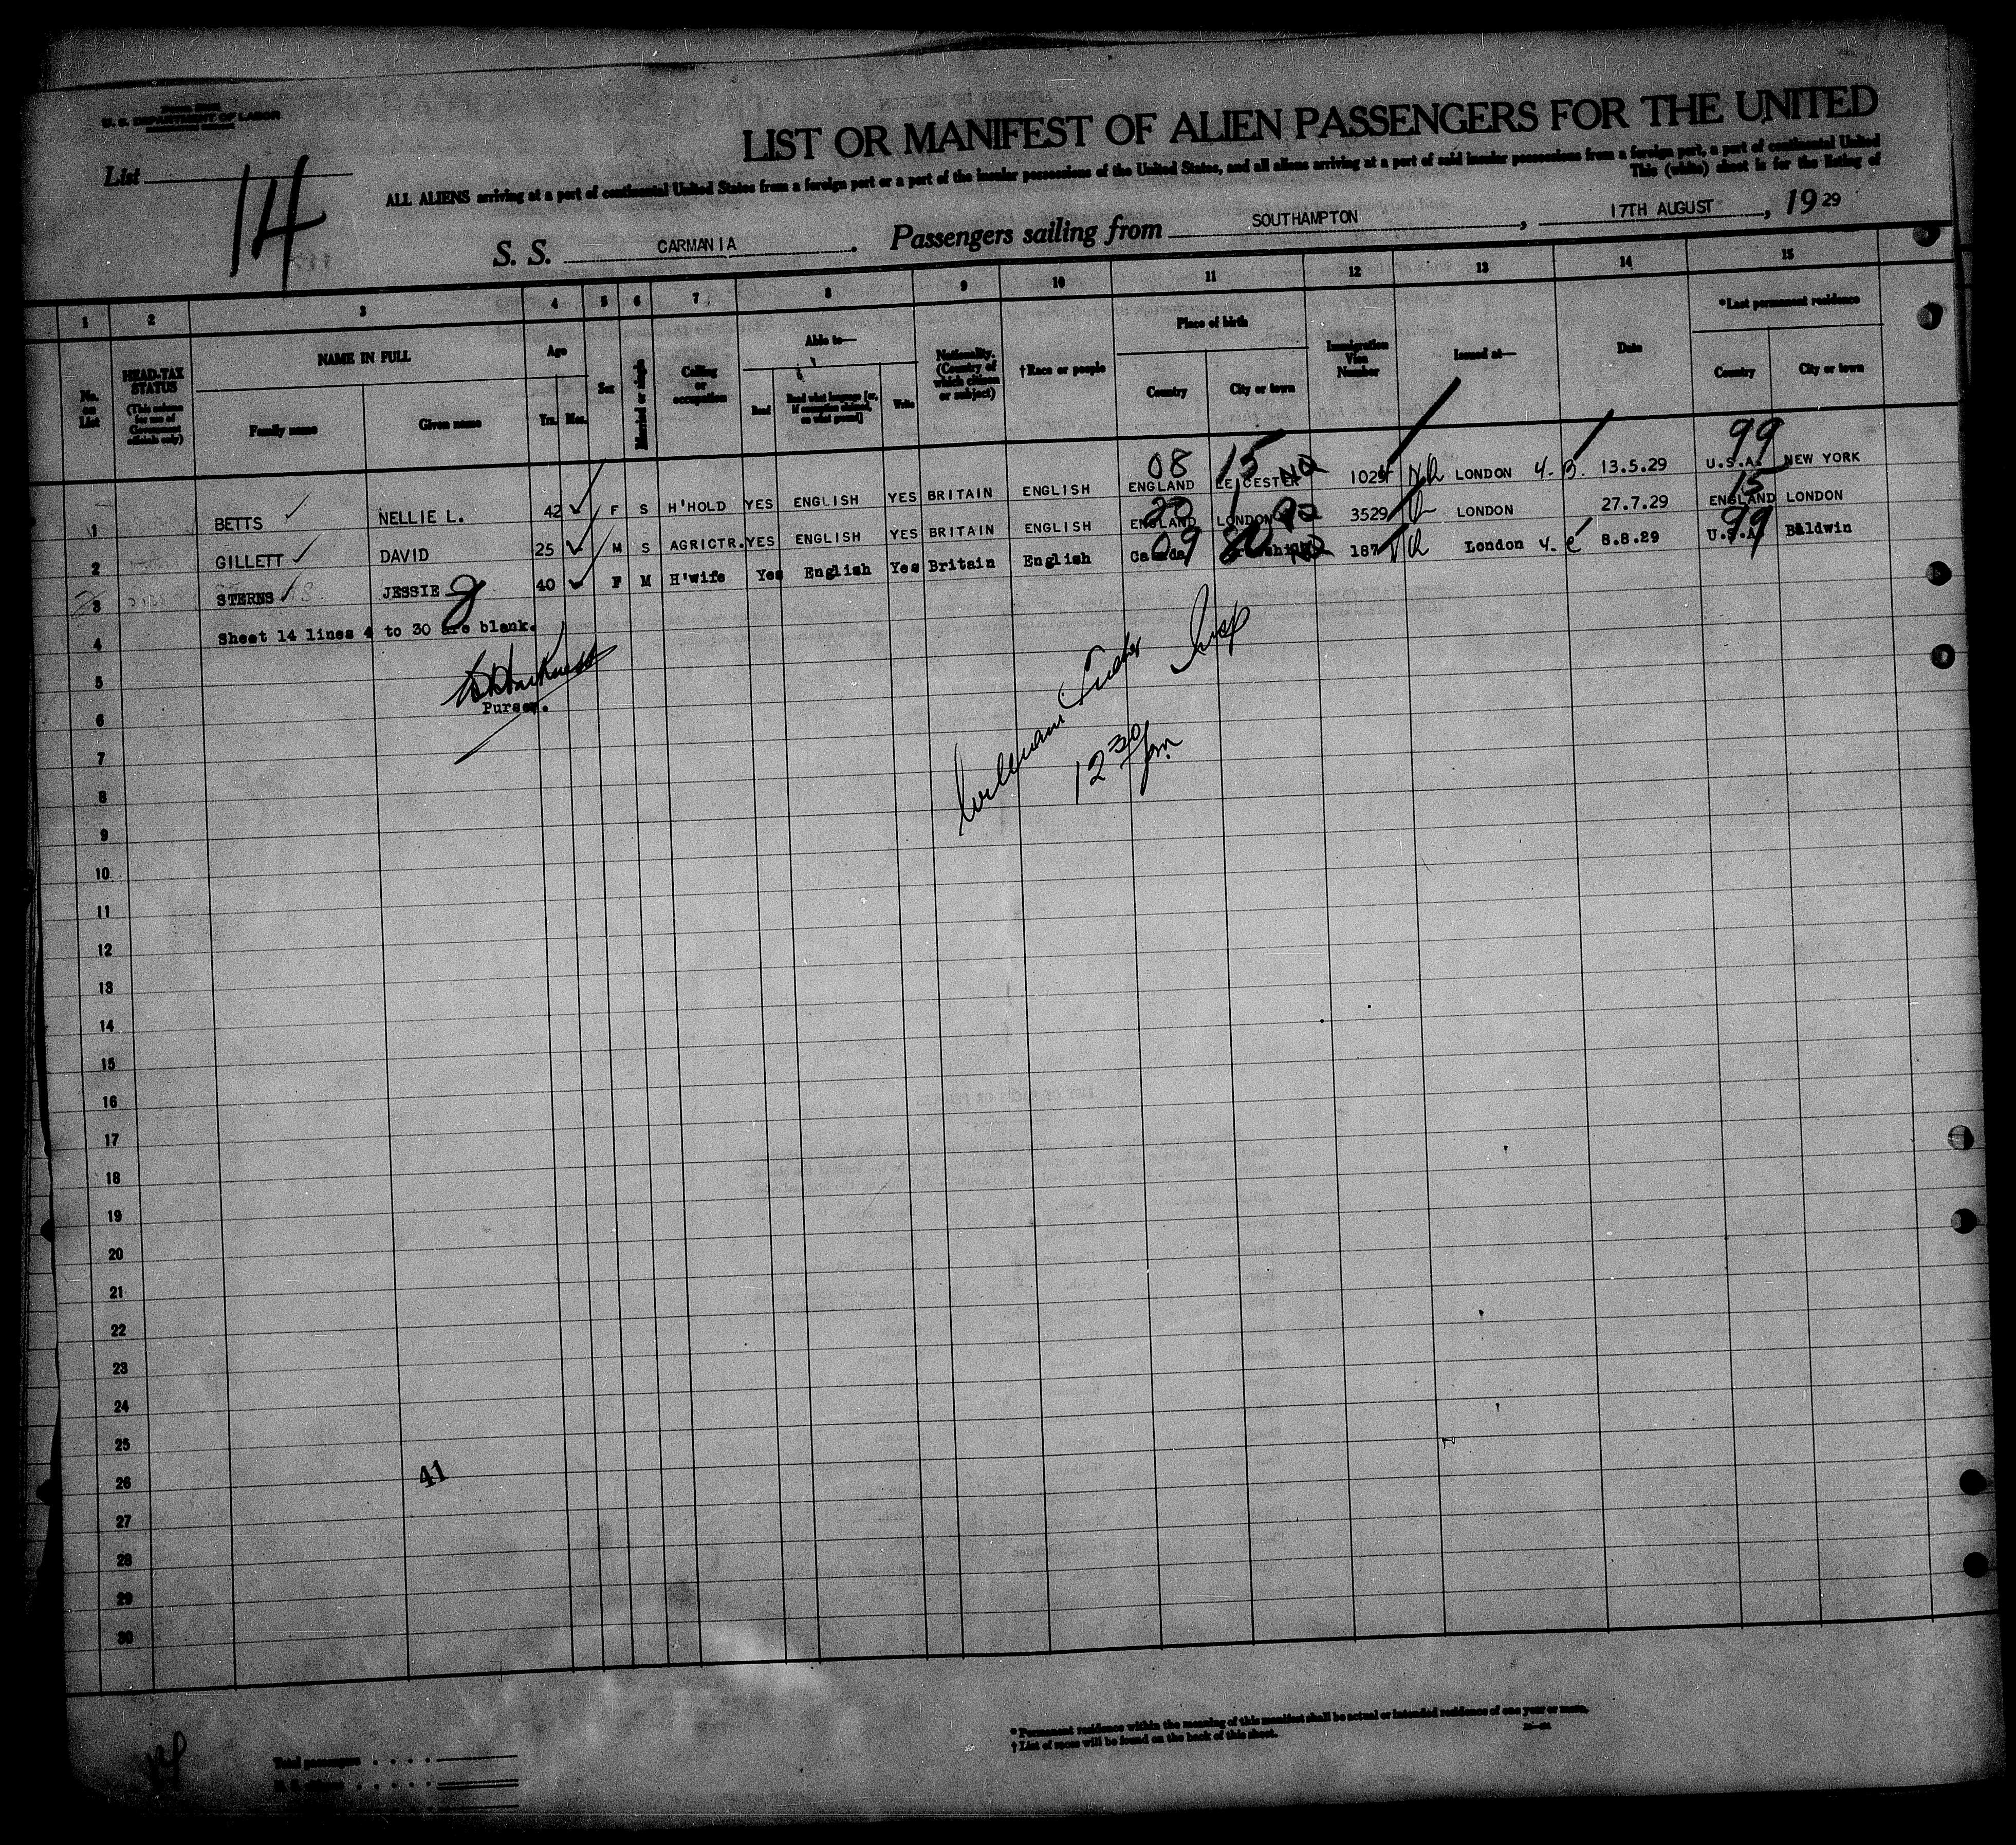 U. S. DEPARTMENT OF LABOR
List 14
LIST OR MANIFEST OF ALIEN PASSENGERS FOR THE UNITED
ALL ALIENS arriving at a port of continental United States from a foreign port or a port of the insular possessions of the United States, and all aliens arriving at a port of said insular possessions from a foreign port, a port of continental United
This (white) sheet is for the listing of
S. S. CARMANIA. Passengers sailing from SOUTHAMPTON, 17TH AUGUST, 19 29
1 2 3 4 5 6 7 8 9 10 11 12 13 14 15
No. on List
HEAD-TAX STATUS (This column for use of Government officials only)
NAME IN FULL
Family name
Given name
Age
Yrs. Mos.
Sex
Married or single
Calling or occupation
Able to—
Read
Read what language [or, if exemption claimed, on what ground]
Write
Nationality. (Country of which citizen or subject)
†Race or people
Place of birth
Country
City or town
Immigration Visa Number
Issued at—
Date
*Last permanent residence
Country
City or town
08 15 99
1 BETTS NELLIE L. 42 F S H'HOLD YES ENGLISH YES BRITAIN ENGLISH ENGLAND LEICESTER LONDON 13.5.29 U.S.A. NEW YORK
20 15
2 GILLETT DAVID 25 M S AGRICTR. YES ENGLISH YES BRITAIN ENGLISH ENGLAND LONDON 3529 LONDON 27.7.29 ENGLAND LONDON
09 99
3 STERNS JESSIE 40 F M H'wife Yes English Yes Britain English Canada 187 London 8.8.29 U.S.A. Baldwin
4 Sheet 14 lines 4 to 30 are blank.
5
Purser.
6
William Insp
12 30 pm
7
8
9
10
11
12
13
14
15
16
17
18
19
20
21
22
23
24
25
26
41
27
28
29
30
* Permanent residence within the meaning of this manifest shall be actual or intended residence of one year or more.
† List of races will be found on the back of this sheet.
Total passengers